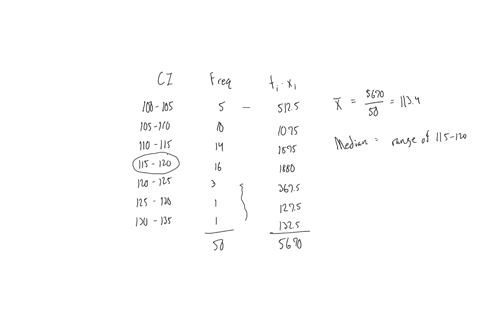 CI Freq fi · xi
100 - 105 5 — 512.5
105 - 110 10 1075
110 - 115 14 1575
115 - 120 16 1880
120 - 125 3 367.5
125 - 130 1 127.5
130 - 135 1 132.5
50 5670
x̄ = 5670/50 = 113.4
Median = range of 115-120